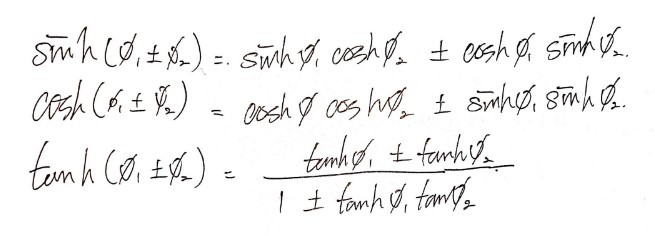 sinh (∅₁ ± ∅₂) = sinh ∅₁ cosh ∅₂ ± cosh ∅₁ sinh ∅₂.
cosh (∅₁ ± ∅₂) = cosh ∅ cosh ∅₂ ± sinh ∅₁ sinh ∅₂.
tanh (∅₁ ± ∅₂) = (tanh ∅₁ ± tanh ∅₂) / (1 ± tanh ∅₁ tan ∅₂)